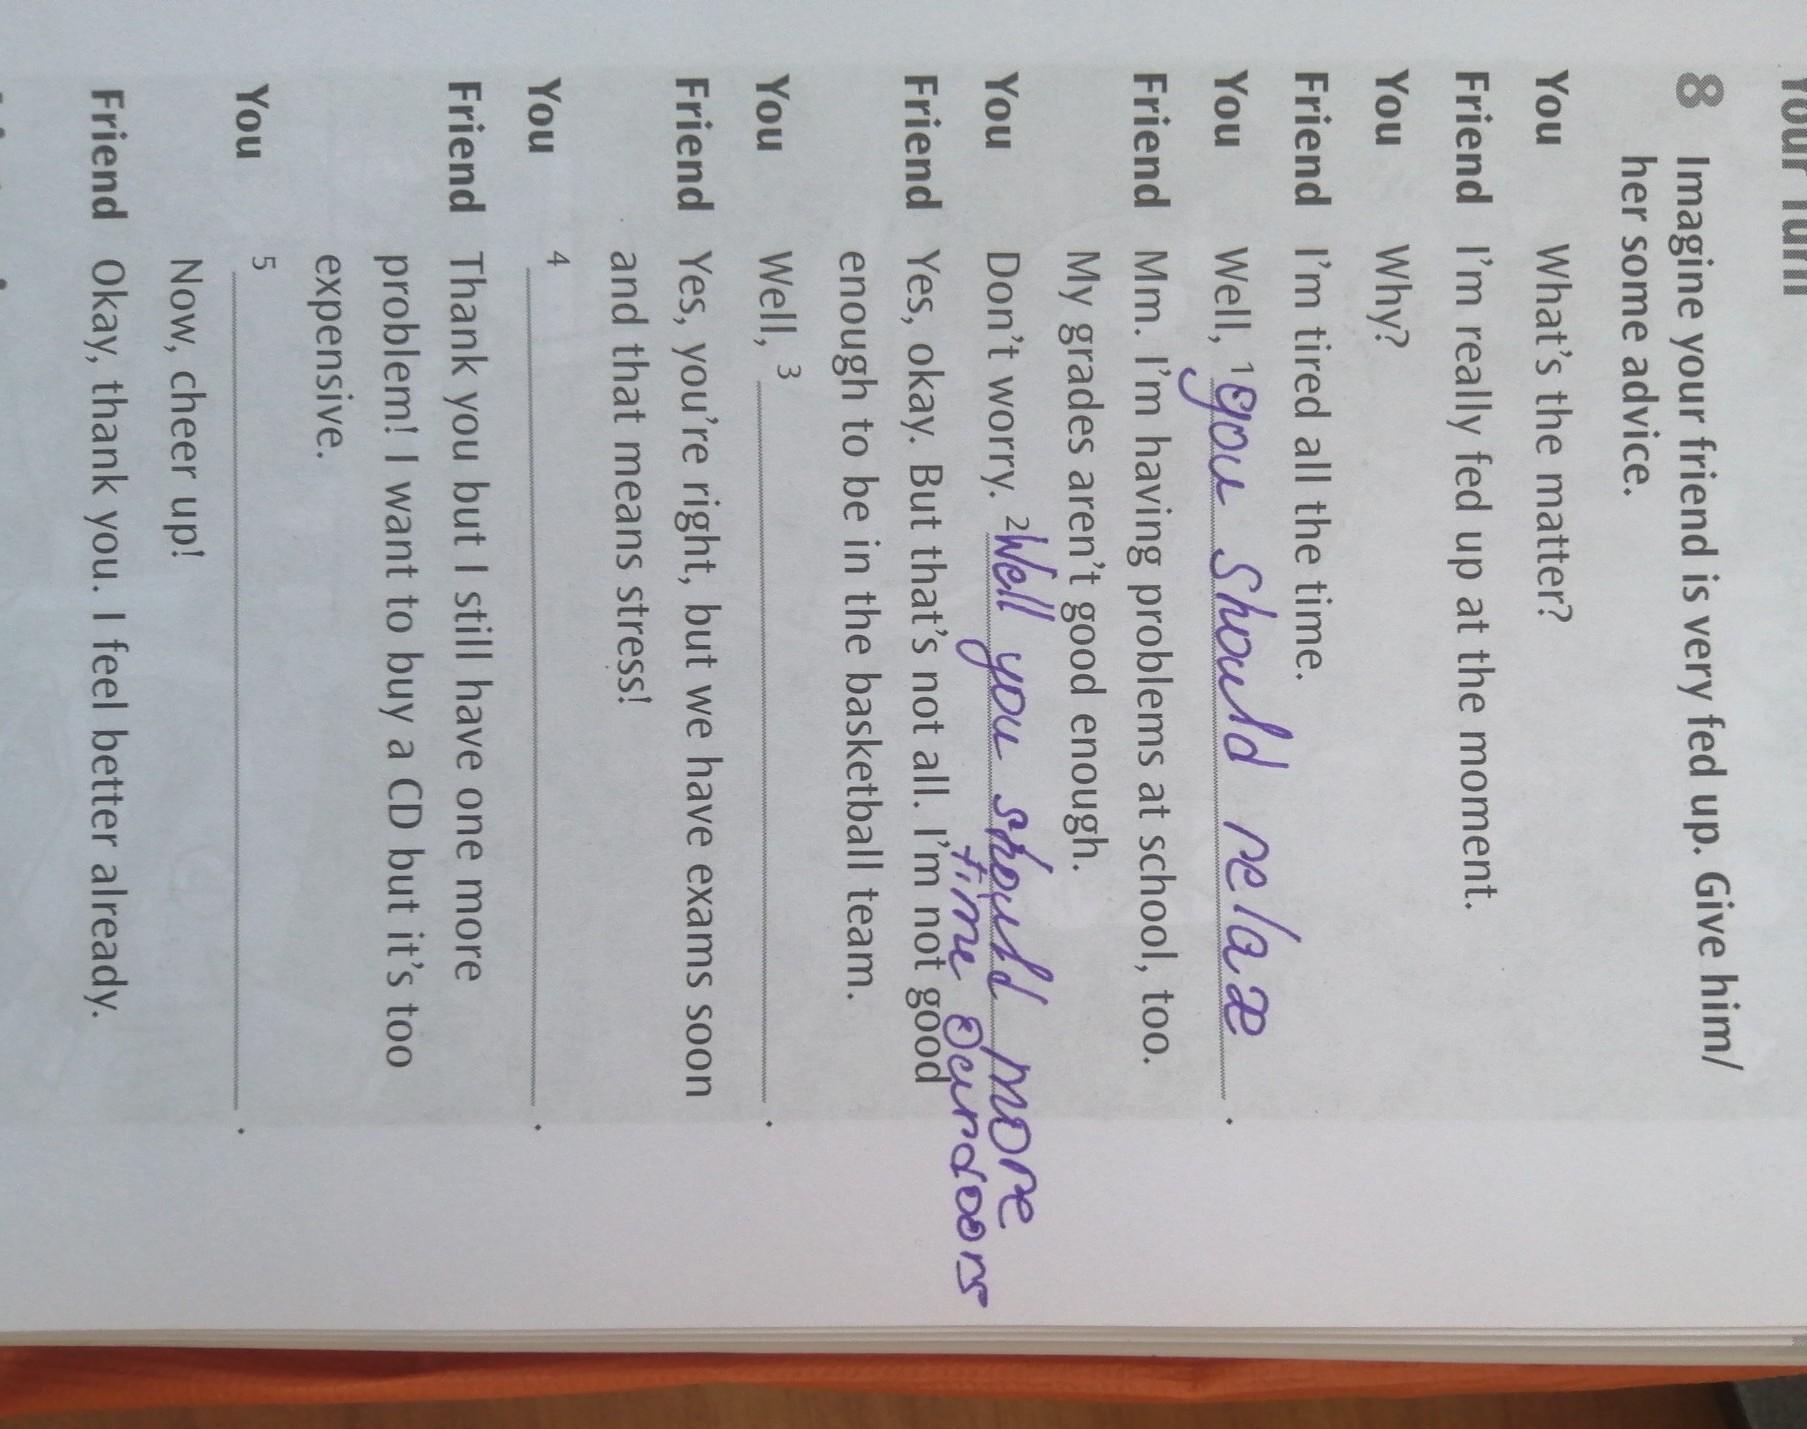 Your Turn
8 Imagine your friend is very fed up. Give him/
her some advice.
You What's the matter?
Friend I'm really fed up at the moment.
You Why?
Friend I'm tired all the time.
You Well, 1 you should relax.
Friend Mm. I'm having problems at school, too.
My grades aren't good enough.
You Don't worry. 2 Well you should more
time ourdoors
Friend Yes, okay. But that's not all. I'm not good
enough to be in the basketball team.
You Well, 3 .
Friend Yes, you're right, but we have exams soon
and that means stress!
You 4 .
Friend Thank you but I still have one more
problem! I want to buy a CD but it's too
expensive.
You 5 .
Now, cheer up!
Friend Okay, thank you. I feel better already.